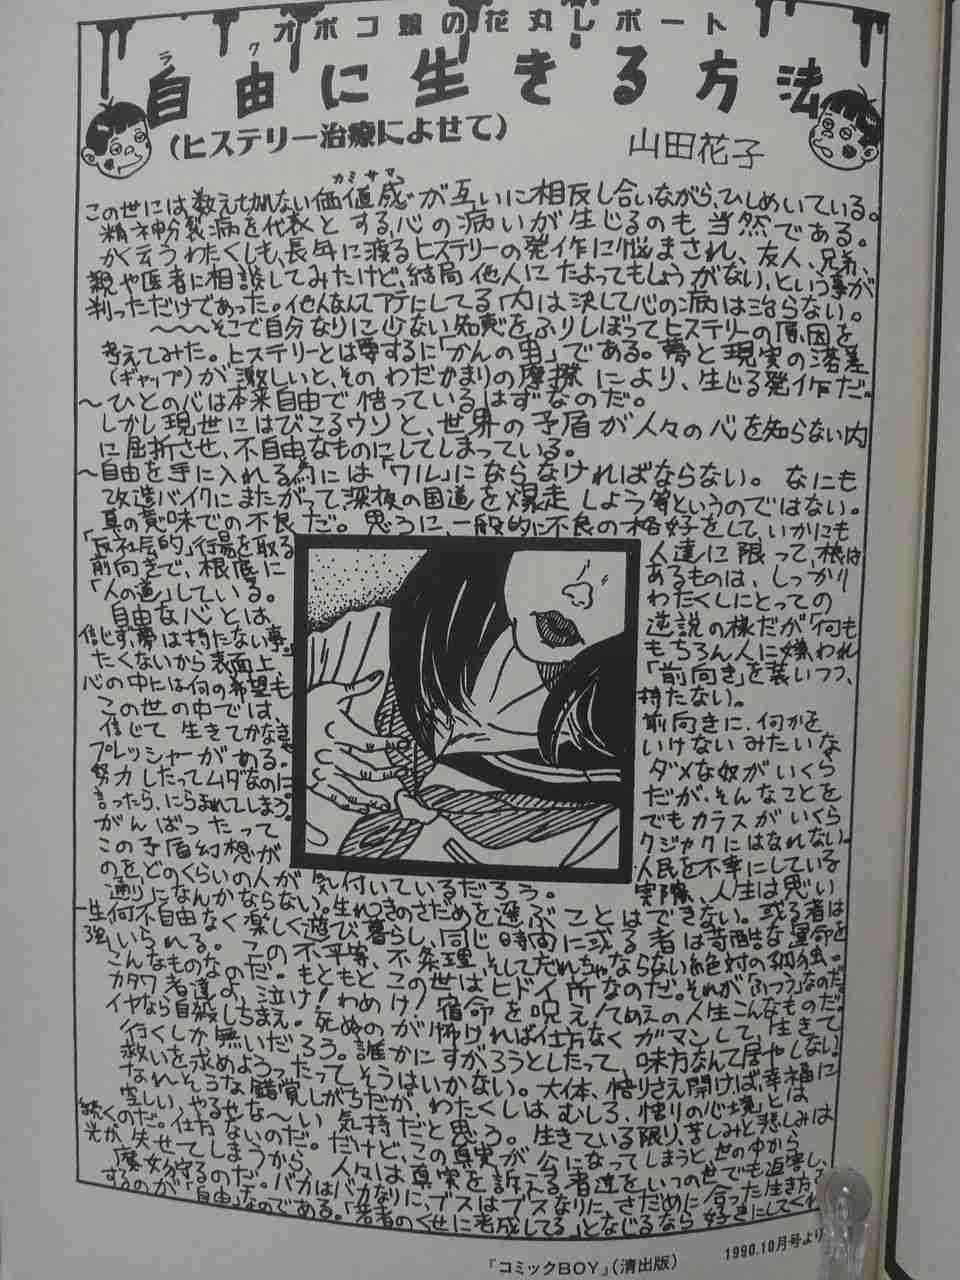 オボコ娘の花丸レポート
自由に生きる方法
ラク
(ヒステリー治療によせて)
山田花子
カミサマ
この世には数えきれない価値感が互いに相反し合いながら、ひしめいている。
精神分裂病を代表とする、心の病いが生じるのも当然である。
かく云うわたくしも、長年に渡るヒステリーの発作に悩まされ、友人、兄弟、
親や医者に相談してみたけど、結局他人にたよってもしょうがない、という事が
判っただけであった。他人なんてアテにしてる内は決して心の病は治らない。
〜〜〜そこで自分なりに少ない知恵をふりしぼってヒステリーの原因を
考えてみた。ヒステリーとは要するに「かんの虫」である。夢と現実の落差
(ギャップ)が激しいと、そのわだかまりの摩擦により、生じる発作だ。
〜ひとの心は本来自由で悟っているはずなのだ。
しかし現世にはびこるウソと、世界の矛盾が人々の心を知らない内
に屈折させ、不自由なものにしてしまっている。
〜自由を手に入れる為には「ワル」にならなければならない。なにも
改造バイクにまたがって深夜の国道を爆走しよう等というのではない。
真の意味での不良だ。思うに、一般的に不良の格好をして、いかにも
「反社会的」行場を取る人達に限って、根は
前向きで、根底にあるものは、しっかり
「人の道」している。わたくしにとっての
自由な心とは、逆説の様だが「何も
信じず、夢は持たない事。もちろん人に嫌われ
たくないから表面上、「前向き」を装いつつ、
心の中には何の希望も持たない。
この世の中では、前向きに、何かを
信じて生きてかなきゃいけないみたいな
プレッシャーがある。ダメな奴がいくら
努力したってムダなのにだが、そんなことを
言ったら、にらまれてしまう。でもカラスがいくら
がんばったってクジャクにはなれない。
この矛盾幻想が人民を不幸にしている
のを、どのくらいの人が気付いているだろう。実際、人生は思い
通りになんかならない。生れつきのさだめを選ぶことはできない。或る者は
一生何不自由なく楽しく遊び、暮らし、同じ時間に或る者は苛酷な運命を
強いられる。この不平等、不条理、そしてだれちゃならない絶対の孤独。
こんなものなのだ。もともとこの世はヒドイ所なのだ。それが「ふつう」なのだ。
カタワ者達よ、泣け!わめけ!宿命を呪え!てめえの人生こんなものだ。
イヤなら自殺しちまえ。死ぬのが怖ければ仕方なくガマンして、生きて
行くしか無いだろう。誰かにすがろうとしたって、味方なんて居やしない。
救いを求めようったってそうはいかない。大体、悟りさえ開けば幸福に
なれそうな錯覚しがちだが、わたくしはむしろ、「悟りの心境」とは
空しい、やるせな〜い気持だと思う。生きている限り、苦しみと悲しみは
続くのだ。仕方ないのだ。だけど、この真実が公になってしまうと、世の中から
光が失せてしまうから、人々は真実を訴える者達をいつの世でも迫害し、
「魔女狩」るのだ。バカはバカなりに、ブスはブスなりに、さだめに合った生き方を
するのが、「自由」なのである。「若者のくせに老成してる」となじるなら好きにしてくれ
『コミックBOY』(清出版)
1990.10月号より